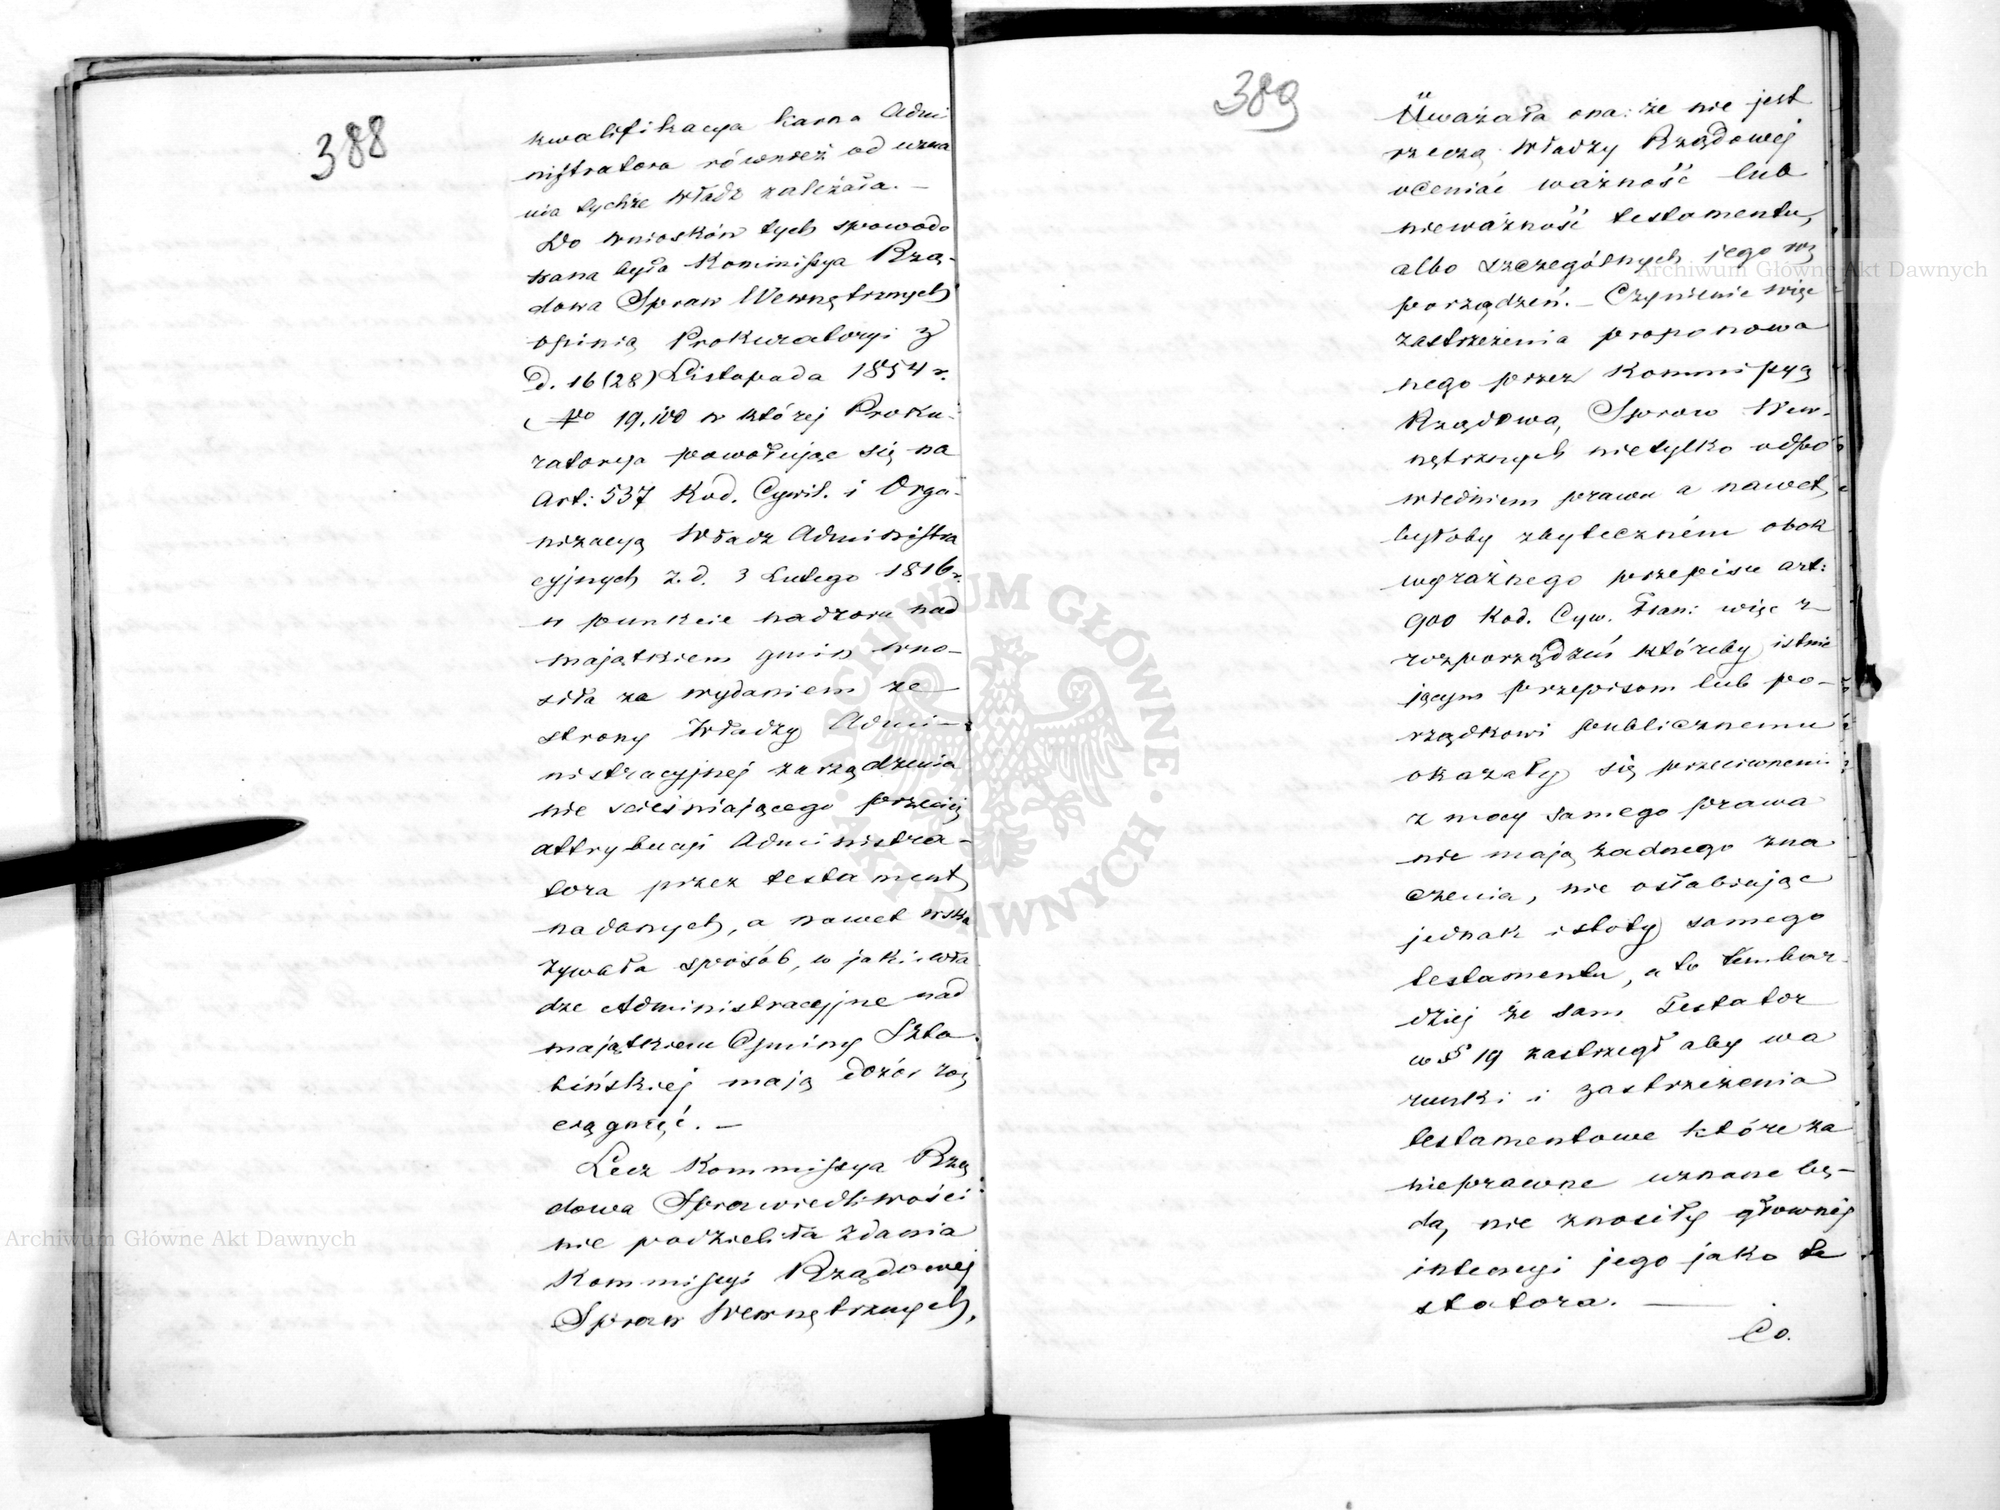 388
kwalifikacya karna Admi
nistratora również od uzna
nia tychże Władz zależała. —
Do wniosków tych spowodo
wana była Kommissya Rzą-
dowa Spraw Wewnętrznych
opinią Prokuratoryi z
d. 16 (28) Listopada 1854 r.
No 19,100 w której Proku-
ratorya powołując się na
Art: 537 Kod. Cywil. i Orga-
nizacyą Władz Administra
cyjnych z d. 3 Lutego 1816 r.
w punkcie nadzoru nad
majątkiem gmin wno-
siła za wydaniem ze
strony Władzy Admi-
nistracyjnej zarządzenia
nie scieśniającego przeciéż
attrybucyi Administra-
tora przez testament
nadanych, a nawet wska
zywała sposób, w jaki wła
dze Administracyjne nad
majątkiem Gminy Szta-
bińskiej mają dozór roz
ciągnąć. —
Lecz Kommissya Rzą
dowa Sprawiedliwości
nie podzieliła zdania
Kommissyi Rządowej
Spraw Wewnętrznych,
389
Uważała ona: że nie jest
rzeczą Władzy Rządowej
oceniać ważność lub
nieważność testamentu,
albo szczególnych jego roz
porządzeń. — Czynienie więc
zastrzeżenia proponowa
nego przez Kommissyą
Rządową Spraw Wew-
nętrznych nietylko odpo
wiedniem prawu a nawet
byłoby zbyteczném obok
wyraźnego przepisu art:
900 Kod. Cyw. Fran: więc z
rozporządzeń któreby istnie
jącym przepisom lub po-
rządkowi publicznemu
okazały się przeciwnemi
z mocy samego prawa
nie mają żadnego zna
czenia, nie osłabiając
jednak istoty samego
testamentu, a to tembar-
dziej że sam Testator
w § 19 zastrzegł aby wa
runki i zastrzeżenia
testamentowe które za
nieprawne uznane bę-
dą, nie znosiły głównej
intencyi jego jako te
statora. —
Co.
Archiwum Główne Akt Dawnych
Archiwum Główne Akt Dawnych
ARCHIWUM GŁÓWNE AKT DAWNYCH